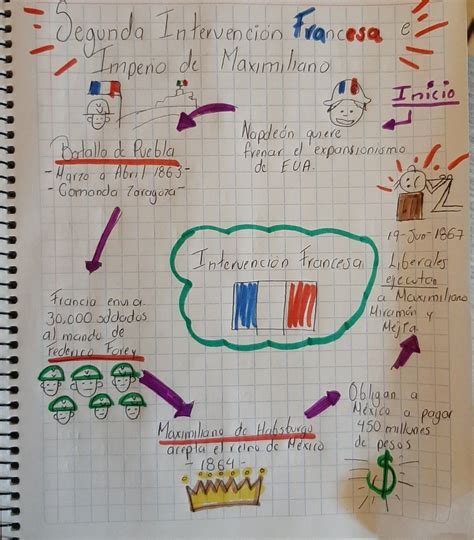 Segunda Intervención Francesa e
Imperio de Maximiliano
Inicio
Napoleón quiere
frenar el expansionismo
de EUA.
Batalla de Puebla
- Marzo a Abril 1863 -
- Comanda Zaragoza -
Francia envia
30,000 soldados
al mando de
Federico Forey
Maximiliano de Habsburgo
acepta el reino de México
- 1864 -
Obligan a
México a pagar
450 millones
de pesos
$
19-Jun-1867
Liberales
ejecutan
a Maximiliano
Miramón y
Mejía.
Intervención Francesa